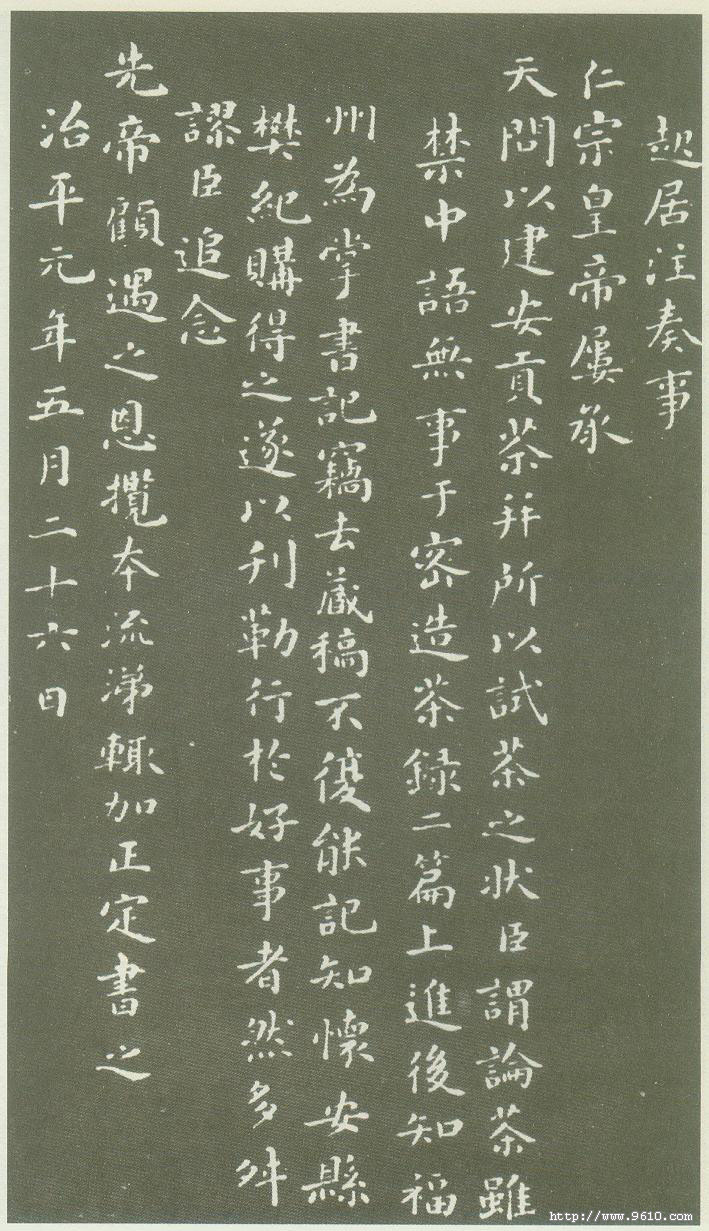 起居注奏事
仁宗皇帝屢承
天問以建安貢茶并所以試茶之狀臣謂論茶雖
禁中語無事于密造茶錄二篇上進後知福
州為掌書記竊去藏稿不復能記知懷安縣
樊紀購得之遂以刊勒行於好事者然多舛
謬臣追念
先帝顧遇之恩攬本流涕輒加正定書之
治平元年五月二十六日
http://www.9610.com